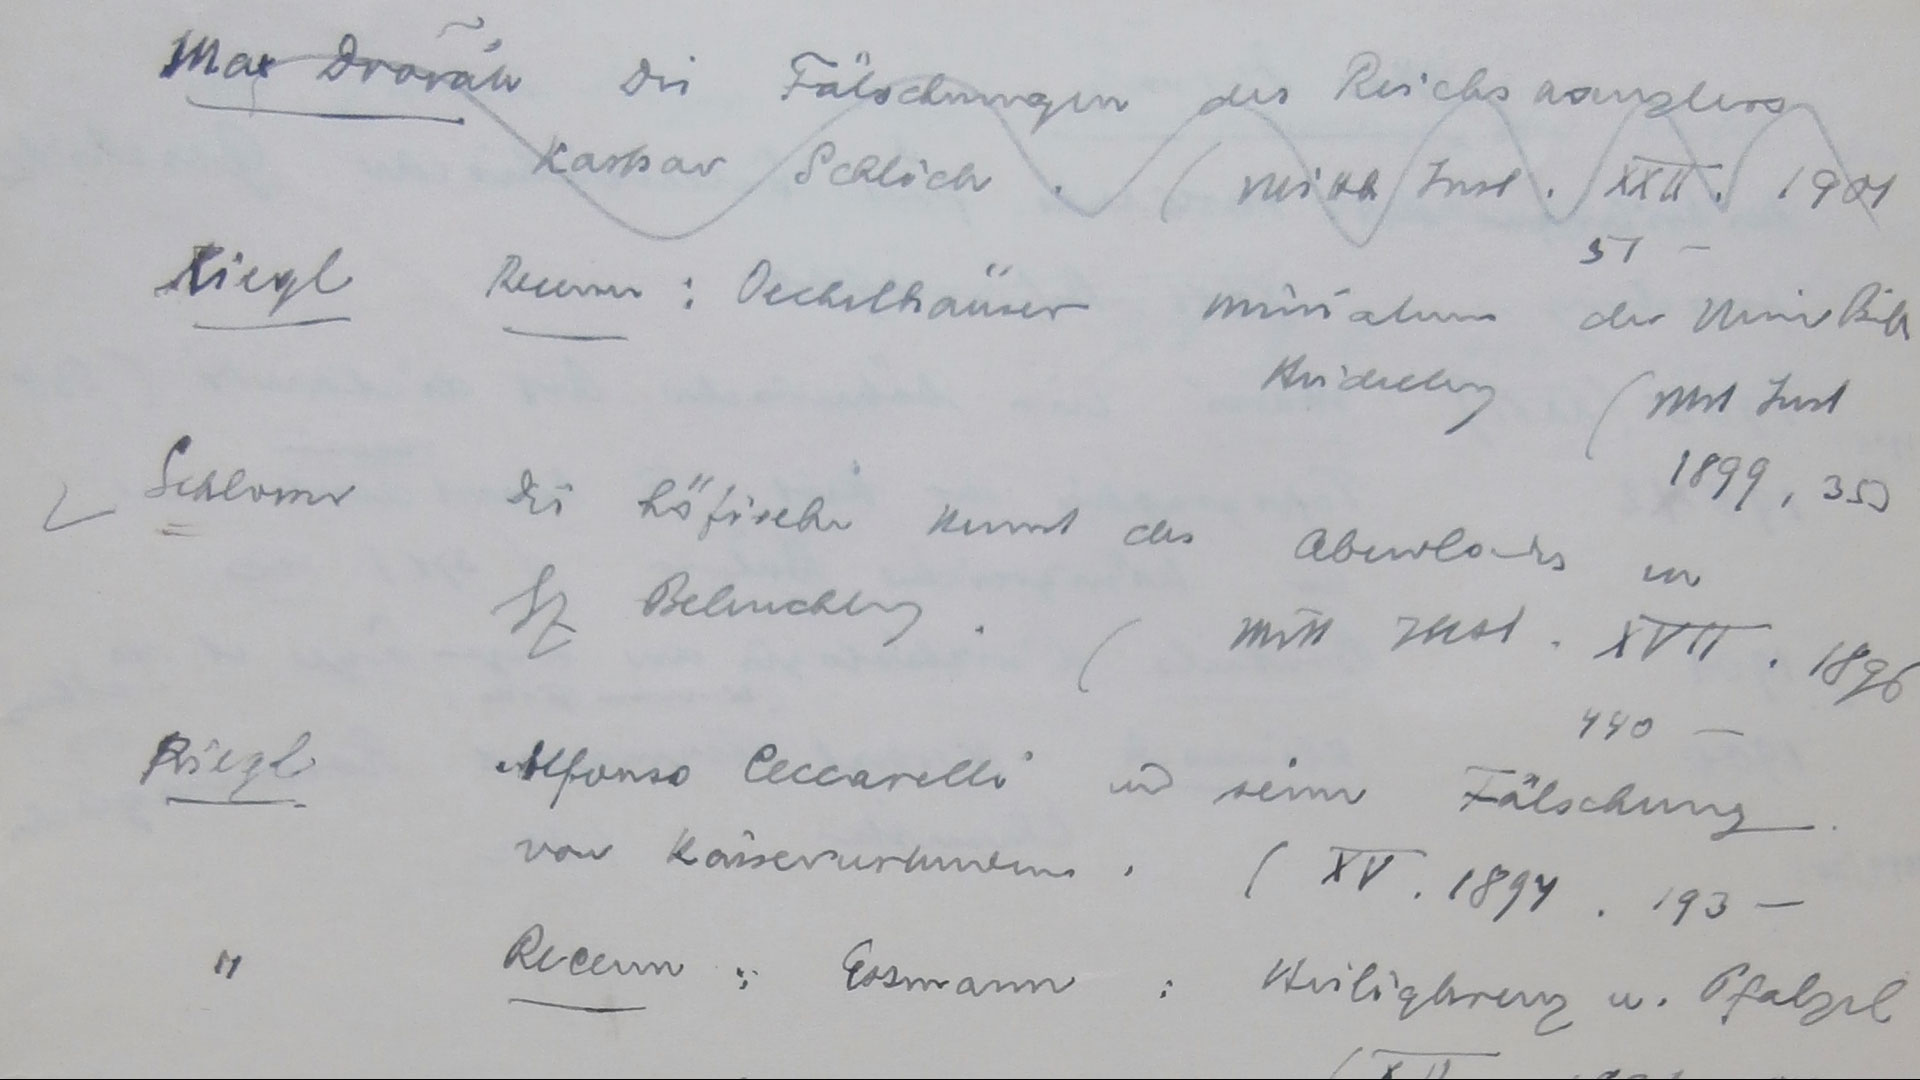 Max Dvořák Die Fälschungen des Reichskanzlers
Kaspar Schlick . ( Mitth Inst . XXII . 1901
51 —
Riegl Recens : Oechelhäuser Miniaturen der Univ Bibl
Heidelberg ( Mitt Inst
1899 , 353
Schlosser Die höfische Kunst des Abendlandes in
bz Beleuchtung . ( Mitt Inst . XVII . 1896
440 —
Riegl Alfonso Ceccarelli und seine Fälschung
von Kaiserurkunden . ( XV . 1894 . 193 —
" Recens : Essmann : Heiligkreuz u. Pfalzel
( XII